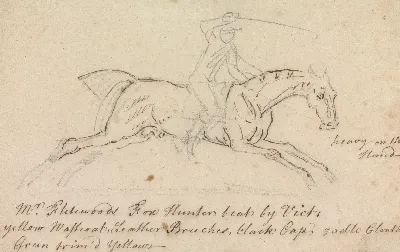 heavy on the
Hand
Mr. Fleetwoods Fox Hunter beat by Vict
yellow Wastcoat Leather Breeches, black Cap,
trim'd yellow